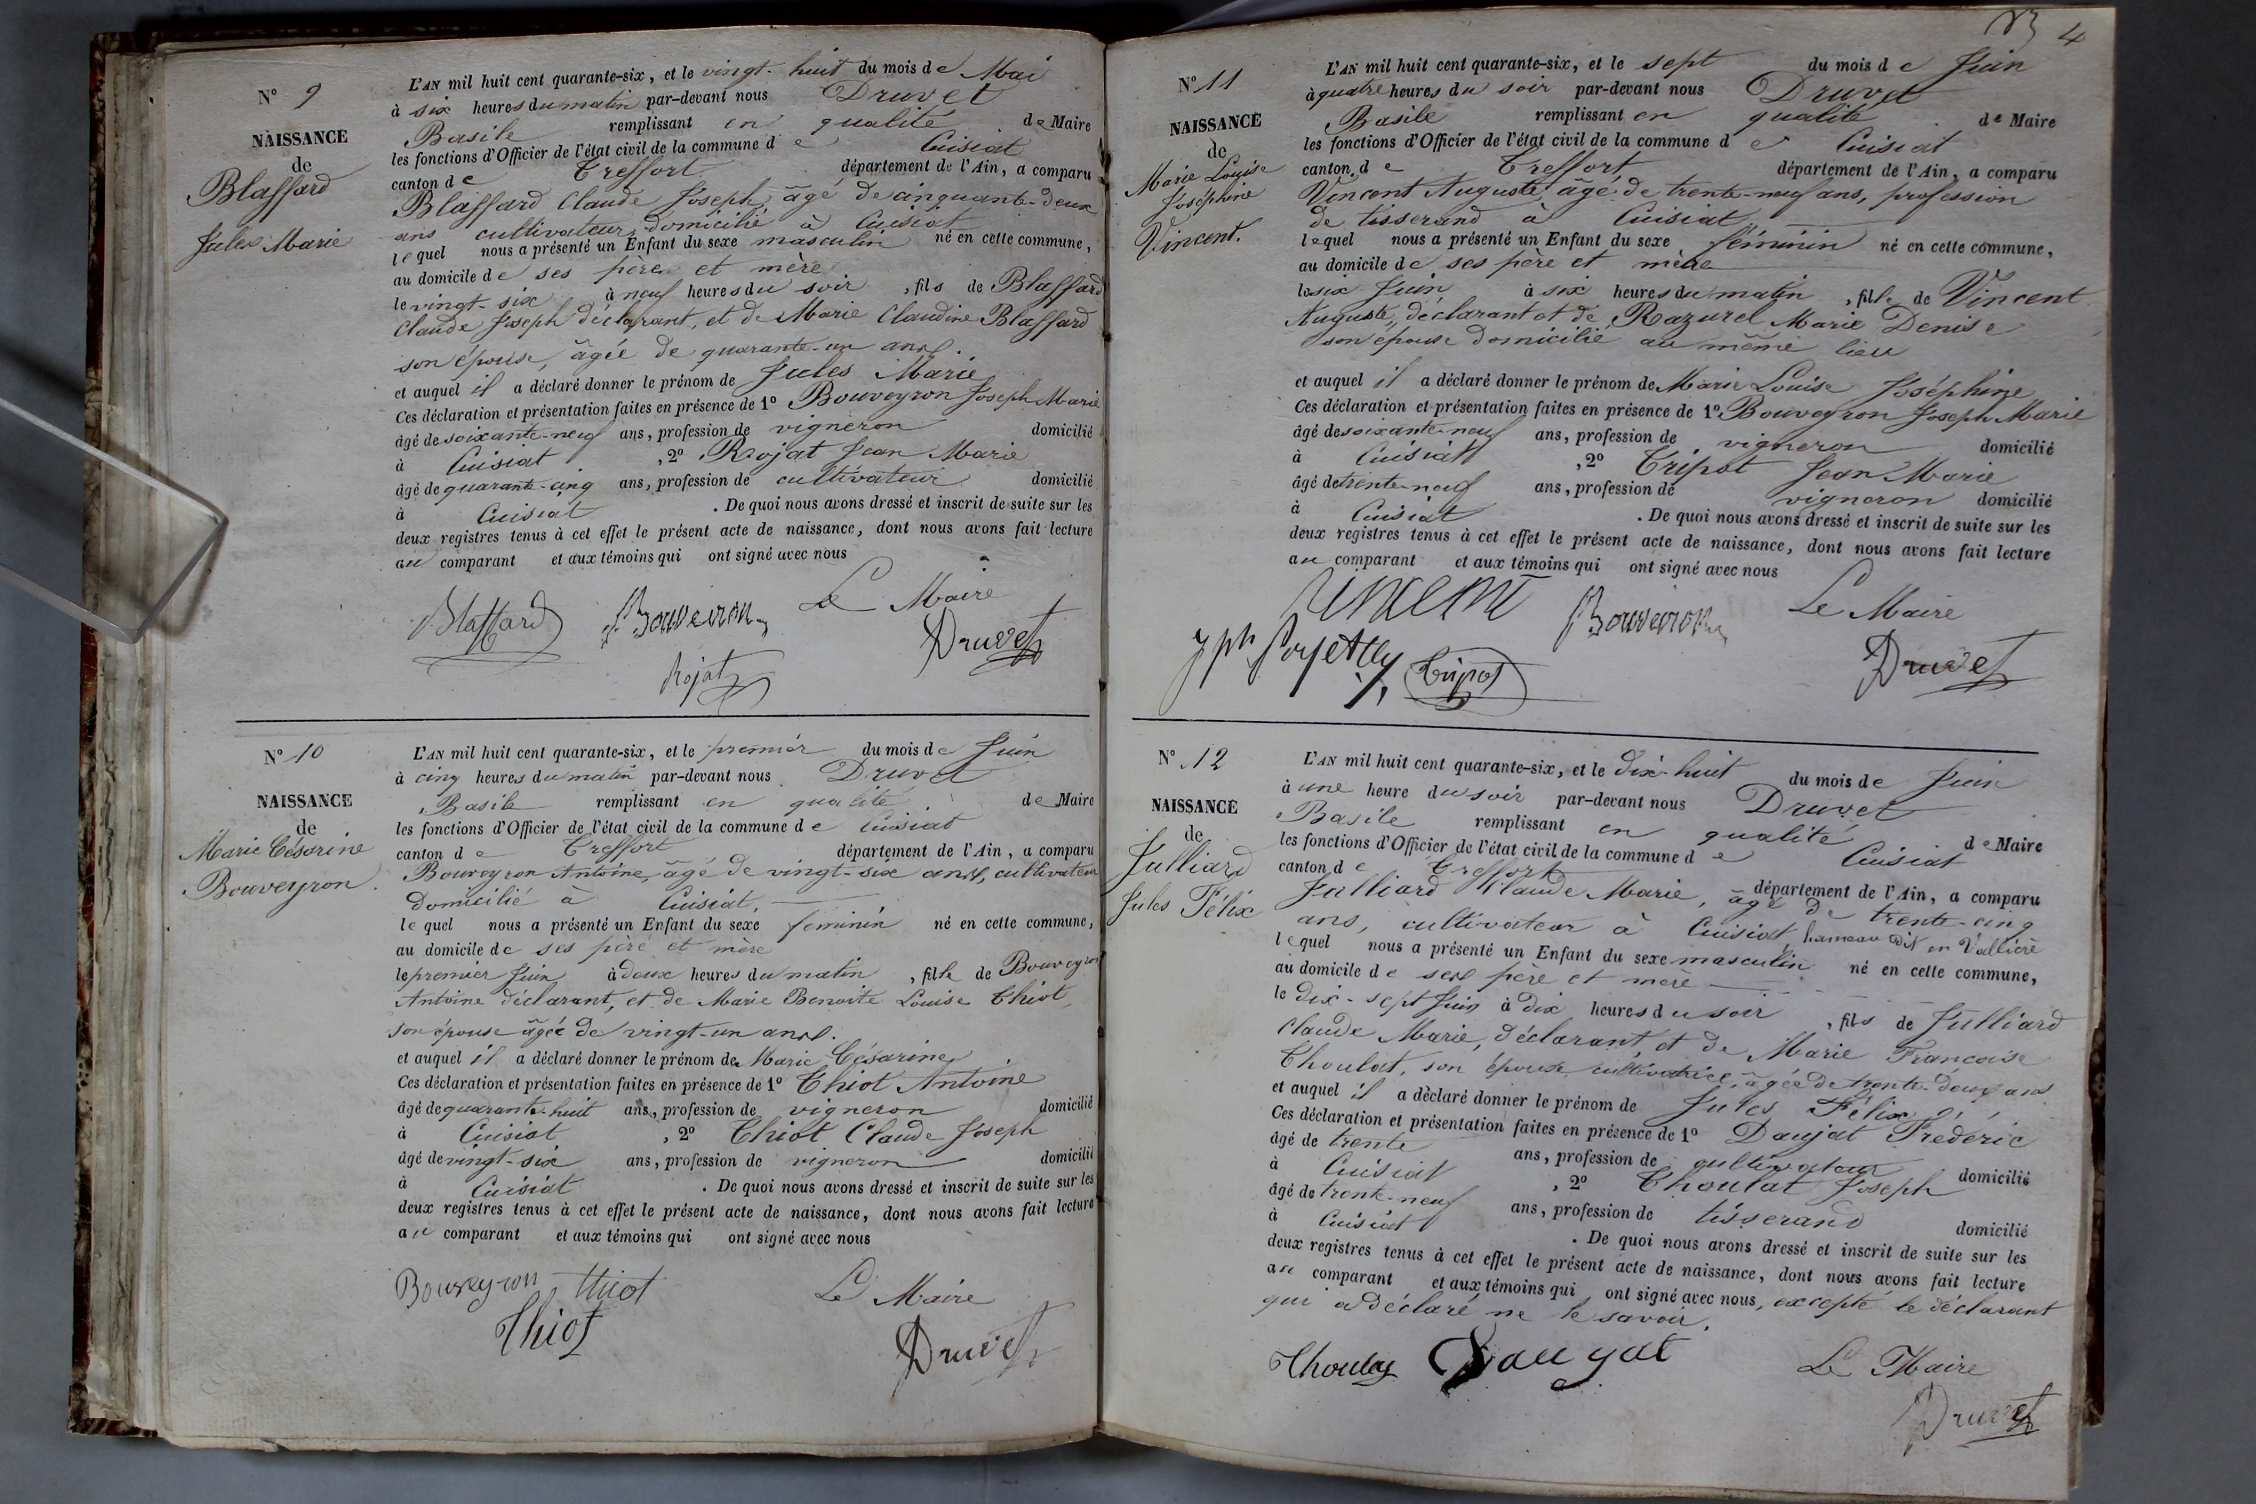 N° 9
NAISSANCE
de
Blaffard
Jules Marie
L'AN mil huit cent quarante-six, et le vingt-huit du mois de Mai
à six heures du matin par-devant nous Druvet
Basile remplissant en qualité de Maire
les fonctions d'Officier de l'état civil de la commune de Cuisiat
canton de Treffort département de l'Ain, a comparu
Blaffard Claude Joseph, âgé de cinquante-deux
ans cultivateur, domicilié à Cuisiat
lequel nous a présenté un Enfant du sexe masculin né en cette commune,
au domicile de ses père et mère
le vingt-six à neuf heures du soir, fils de Blaffard
Claude Joseph déclarant, et de Marie Claudine Blaffard
son épouse, âgée de quarante-un ans.
et auquel il a déclaré donner le prénom de Jules Marie
Ces déclaration et présentation faites en présence de 1° Bouveyron Joseph Marie
âgé de soixante-neuf ans, profession de vigneron domicilié
à Cuisiat, 2° Rojat Jean Marie
âgé de quarante-cinq ans, profession de cultivateur domicilié
à Cuisiat. De quoi nous avons dressé et inscrit de suite sur les
deux registres tenus à cet effet le présent acte de naissance, dont nous avons fait lecture
au comparant et aux témoins qui ont signé avec nous
Blaffard Bouveiron Le Maire
Rojat Druvet
N° 10
NAISSANCE
de
Marie Césarine
Bouveyron.
L'AN mil huit cent quarante-six, et le premier du mois de Juin
à cinq heures du matin par-devant nous Druvet
Basile remplissant en qualité de Maire
les fonctions d'Officier de l'état civil de la commune de Cuisiat
canton de Treffort département de l'Ain, a comparu
Bouveyron Antoine, âgé de vingt-six ans, cultivateur
domicilié à Cuisiat,
lequel nous a présenté un Enfant du sexe féminin né en cette commune,
au domicile de ses père et mère
le premier Juin à deux heures du matin, fille de Bouveyron
Antoine déclarant, et de Marie Benoite Louise Thiot,
son épouse âgée de vingt-un ans.
et auquel il a déclaré donner le prénom de Marie Césarine
Ces déclaration et présentation faites en présence de 1° Thiot Antoine
âgé de quarante-huit ans, profession de vigneron domicilié
à Cuisiat, 2° Thiot Claude Joseph
âgé de vingt-six ans, profession de vigneron domicilié
à Cuisiat. De quoi nous avons dressé et inscrit de suite sur les
deux registres tenus à cet effet le présent acte de naissance, dont nous avons fait lecture
au comparant et aux témoins qui ont signé avec nous
Bouveyron Thiot Le Maire
Thiot Druvet
4
N° 11
NAISSANCE
de
Marie Louise
Joséphine
Vincent.
L'AN mil huit cent quarante-six, et le sept du mois de Juin
à quatre heures du soir par-devant nous Druvet
Basile remplissant en qualité de Maire
les fonctions d'Officier de l'état civil de la commune de Cuisiat
canton de Treffort département de l'Ain, a comparu
Vincent Auguste, âgé de trente-neuf ans, profession
de tisserand à Cuisiat,
lequel nous a présenté un Enfant du sexe féminin né en cette commune,
au domicile de ses père et mère
le six Juin à six heures du matin, fille de Vincent
Auguste, déclarant et de Razurel Marie Denise
son épouse domicilié au même lieu
et auquel il a déclaré donner le prénom de Marie Louise Joséphine
Ces déclaration et présentation faites en présence de 1° Bouveyron Joseph Marie
âgé de soixante-neuf ans, profession de vigneron domicilié
à Cuisiat, 2° Tripot Jean Marie
âgé de trente-neuf ans, profession de vigneron domicilié
à Cuisiat. De quoi nous avons dressé et inscrit de suite sur les
deux registres tenus à cet effet le présent acte de naissance, dont nous avons fait lecture
au comparant et aux témoins qui ont signé avec nous
Vincent Bouveiron Le Maire
Jph Tripot Druvet
N° 12
NAISSANCE
de
Julliard
Jules Félix
L'AN mil huit cent quarante-six, et le dix-huit du mois de Juin
à une heure du soir par-devant nous Druvet
Basile remplissant en qualité de Maire
les fonctions d'Officier de l'état civil de la commune de Cuisiat
canton de Treffort département de l'Ain, a comparu
Julliard Claude Marie, âgé de trente-cinq
ans, cultivateur à Cuisiat, hameau dit en Vallière
lequel nous a présenté un Enfant du sexe masculin né en cette commune,
au domicile de ses père et mère
le dix-sept Juin à dix heures du soir, fils de Julliard
Claude Marie, déclarant, et de Marie Francoise
Choulat, son épouse, cultivatrice, âgée de trente-deux ans
et auquel il a déclaré donner le prénom de Jules Félix
Ces déclaration et présentation faites en présence de 1° Daujat Frédéric
âgé de trente ans, profession de cultivateur domicilié
à Cuisiat, 2° Choulat Joseph
âgé de trente-neuf ans, profession de tisserand domicilié
à Cuisiat. De quoi nous avons dressé et inscrit de suite sur les
deux registres tenus à cet effet le présent acte de naissance, dont nous avons fait lecture
au comparant et aux témoins qui ont signé avec nous, excepté le déclarant
qui a déclaré ne le savoir.
Choulat Daugat Le Maire
Druvet